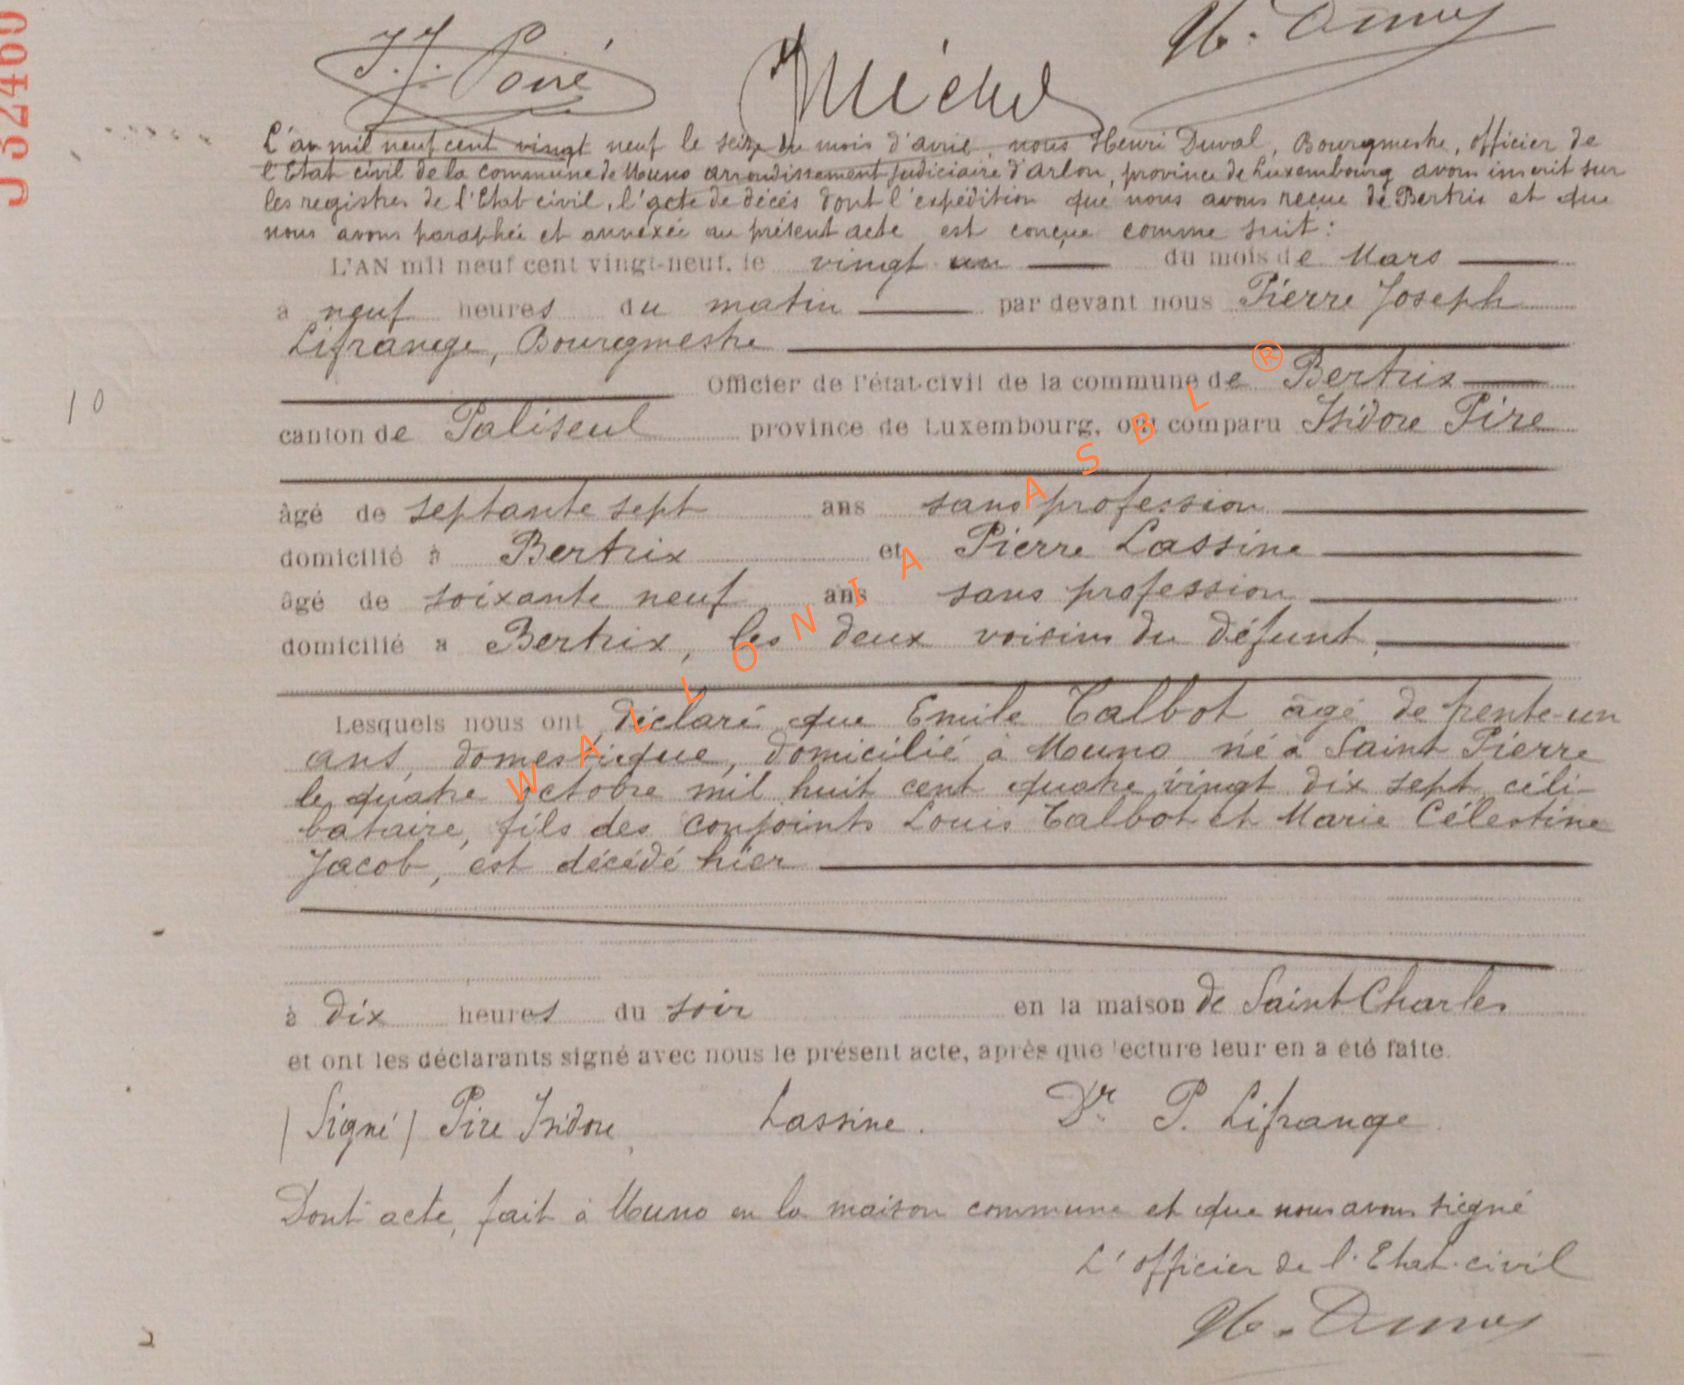 J 32460
J.J. Poiré
Michel
H. Duval
L'an mil neuf cent vingt neuf le seize du mois d'avril, nous Henri Duval, Bourgmestre, officier de
l'Etat civil de la commune de Muno arrondissement judiciaire d'Arlon, province de Luxembourg avons inscrit sur
les registres de l'Etat civil, l'acte de décès dont l'expédition que nous avons reçue de Bertrix et que
nous avons paraphée et annexée au présent acte est conçue comme suit:
L'AN mil neuf cent vingt-neuf, le vingt un du mois de Mars
à neuf heures du matin par devant nous Pierre Joseph
Lifrange, Bourgmestre
Officier de l'état-civil de la commune de Bertrix
10
canton de Paliseul province de Luxembourg, ont comparu Isidore Pire
âgé de septante sept ans sans profession
domicilié à Bertrix et Pierre Lassine
âgé de soixante neuf ans sans profession
domicilié à Bertrix, les deux voisins du défunt.
Lesquels nous ont déclaré que Emile Talbot âgé de trente-un
ans, domestique, domicilié à Muno né à Saint Pierre
le quatre octobre mil huit cent quatre vingt dix sept céli-
bataire, fils des conjoints Louis Talbot et Marie Célestine
Jacob, est décédé hier
à dix heures du soir en la maison de Saint Charles
et ont les déclarants signé avec nous le présent acte, après que lecture leur en a été faite.
(Signé) Pire Isidore, Lassine. Dr P. Lifrange.
Dont acte, fait à Muno en la maison commune et que nous avons signé
L'officier de l'Etat-civil
H. Duval
WALLONIA ASBL ®